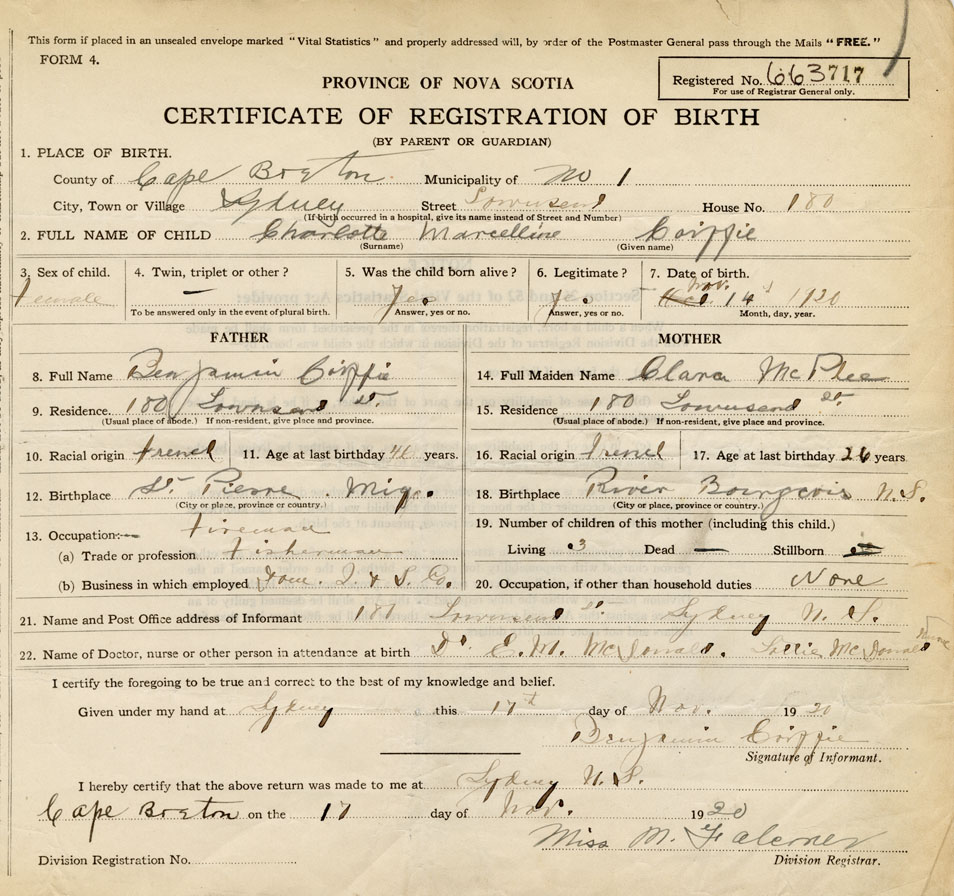 This form if placed in an unsealed envelope marked "Vital Statistics" and properly addressed will, by order of the Postmaster General pass through the Mails "FREE."
FORM 4.
Registered No. 663717
For use of Registrar General only.
PROVINCE OF NOVA SCOTIA
CERTIFICATE OF REGISTRATION OF BIRTH
(BY PARENT OR GUARDIAN)
1. PLACE OF BIRTH.
County of Cape Breton Municipality of No 1
City, Town or Village Sydney Street Townsend House No. 180
(If birth occurred in a hospital, give its name instead of Street and Number)
2. FULL NAME OF CHILD Charlotte Marcelline Coiffie
(Surname) (Given name)
3. Sex of child. 4. Twin, triplet or other? 5. Was the child born alive? 6. Legitimate? 7. Date of birth.
Female — Yes Yes Nov. 14 1920
To be answered only in the event of plural birth. Answer, yes or no. Answer, yes or no. Month, day, year.
FATHER
8. Full Name Benjamin Coiffie
9. Residence. 180 Townsend St.
(Usual place of abode.) If non-resident, give place and province.
10. Racial origin French 11. Age at last birthday years.
12. Birthplace St. Pierre. Miq.
(City or place, province or country.)
13. Occupation:— Fireman
(a) Trade or profession Fisherman
(b) Business in which employed Dom. I. & S. Co.
MOTHER
14. Full Maiden Name Clara McPhee
15. Residence 180 Townsend St.
(Usual place of abode.) If non-resident, give place and province.
16. Racial origin French 17. Age at last birthday 26 years.
18. Birthplace River Bourgeois N.S.
(City or place, province or country.)
19. Number of children of this mother (including this child.)
Living 3 Dead — Stillborn
20. Occupation, if other than household duties None
21. Name and Post Office address of Informant 180 Townsend St. Sydney N. S.
22. Name of Doctor, nurse or other person in attendance at birth Dr. E. M. McDonald. McDonald Nurse
I certify the foregoing to be true and correct to the best of my knowledge and belief.
Given under my hand at Sydney this 17th day of Nov. 1920
Benjamin Coiffie
Signature of Informant.
I hereby certify that the above return was made to me at Sydney N. S.
Cape Breton on the 17 day of Nov. 1920
Miss M. Falconer
Division Registrar.
Division Registration No.